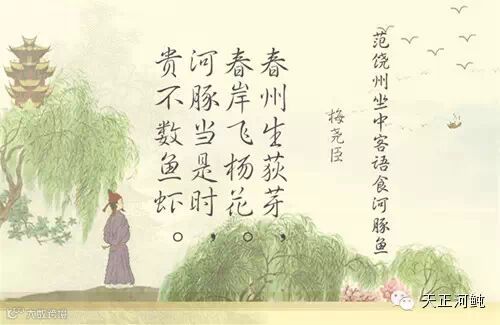 范饶州坐中客语食河豚鱼
梅尧臣
春州生荻芽，
春岸飞杨花。
河豚当是时，
贵不数鱼虾。
天正河鲀
大成跨境